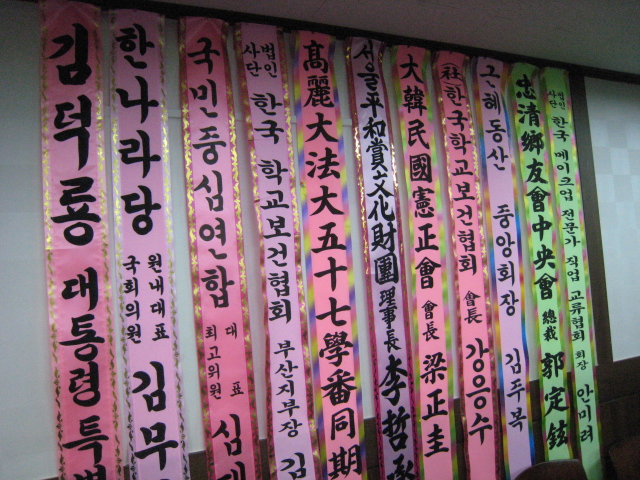 김덕룡 대통령 특
한나라당 국회의원 원내대표 김무
국민중심연합 최고위원 대표 심대
사단법인 한국 학교보건협회 부산지부장 김
高麗大法大五十七學番同期
서울平和賞文化財團 理事長 李哲承
大韓民國憲正會 會長 梁正圭
(社)한국학교보건협회 會長 강응수
근혜동산 중앙회장 김주복
忠清鄉友會中央會 總裁 郭定鉉
사단법인 한국 메이크업 전문가 직업 교류협회 회장 안미려